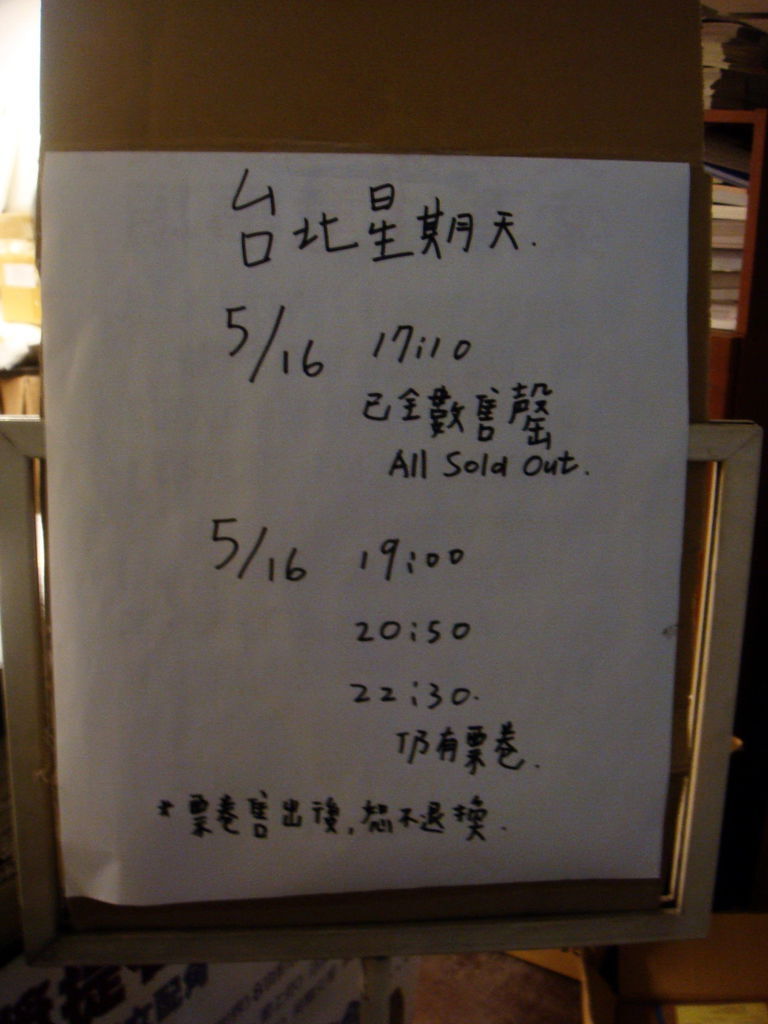 台北星期天.
5/16 17:10
已全數售罄
All Sold Out.
5/16 19:00
20:50
22:30.
仍有票卷.
*票卷售出後,恕不退換.